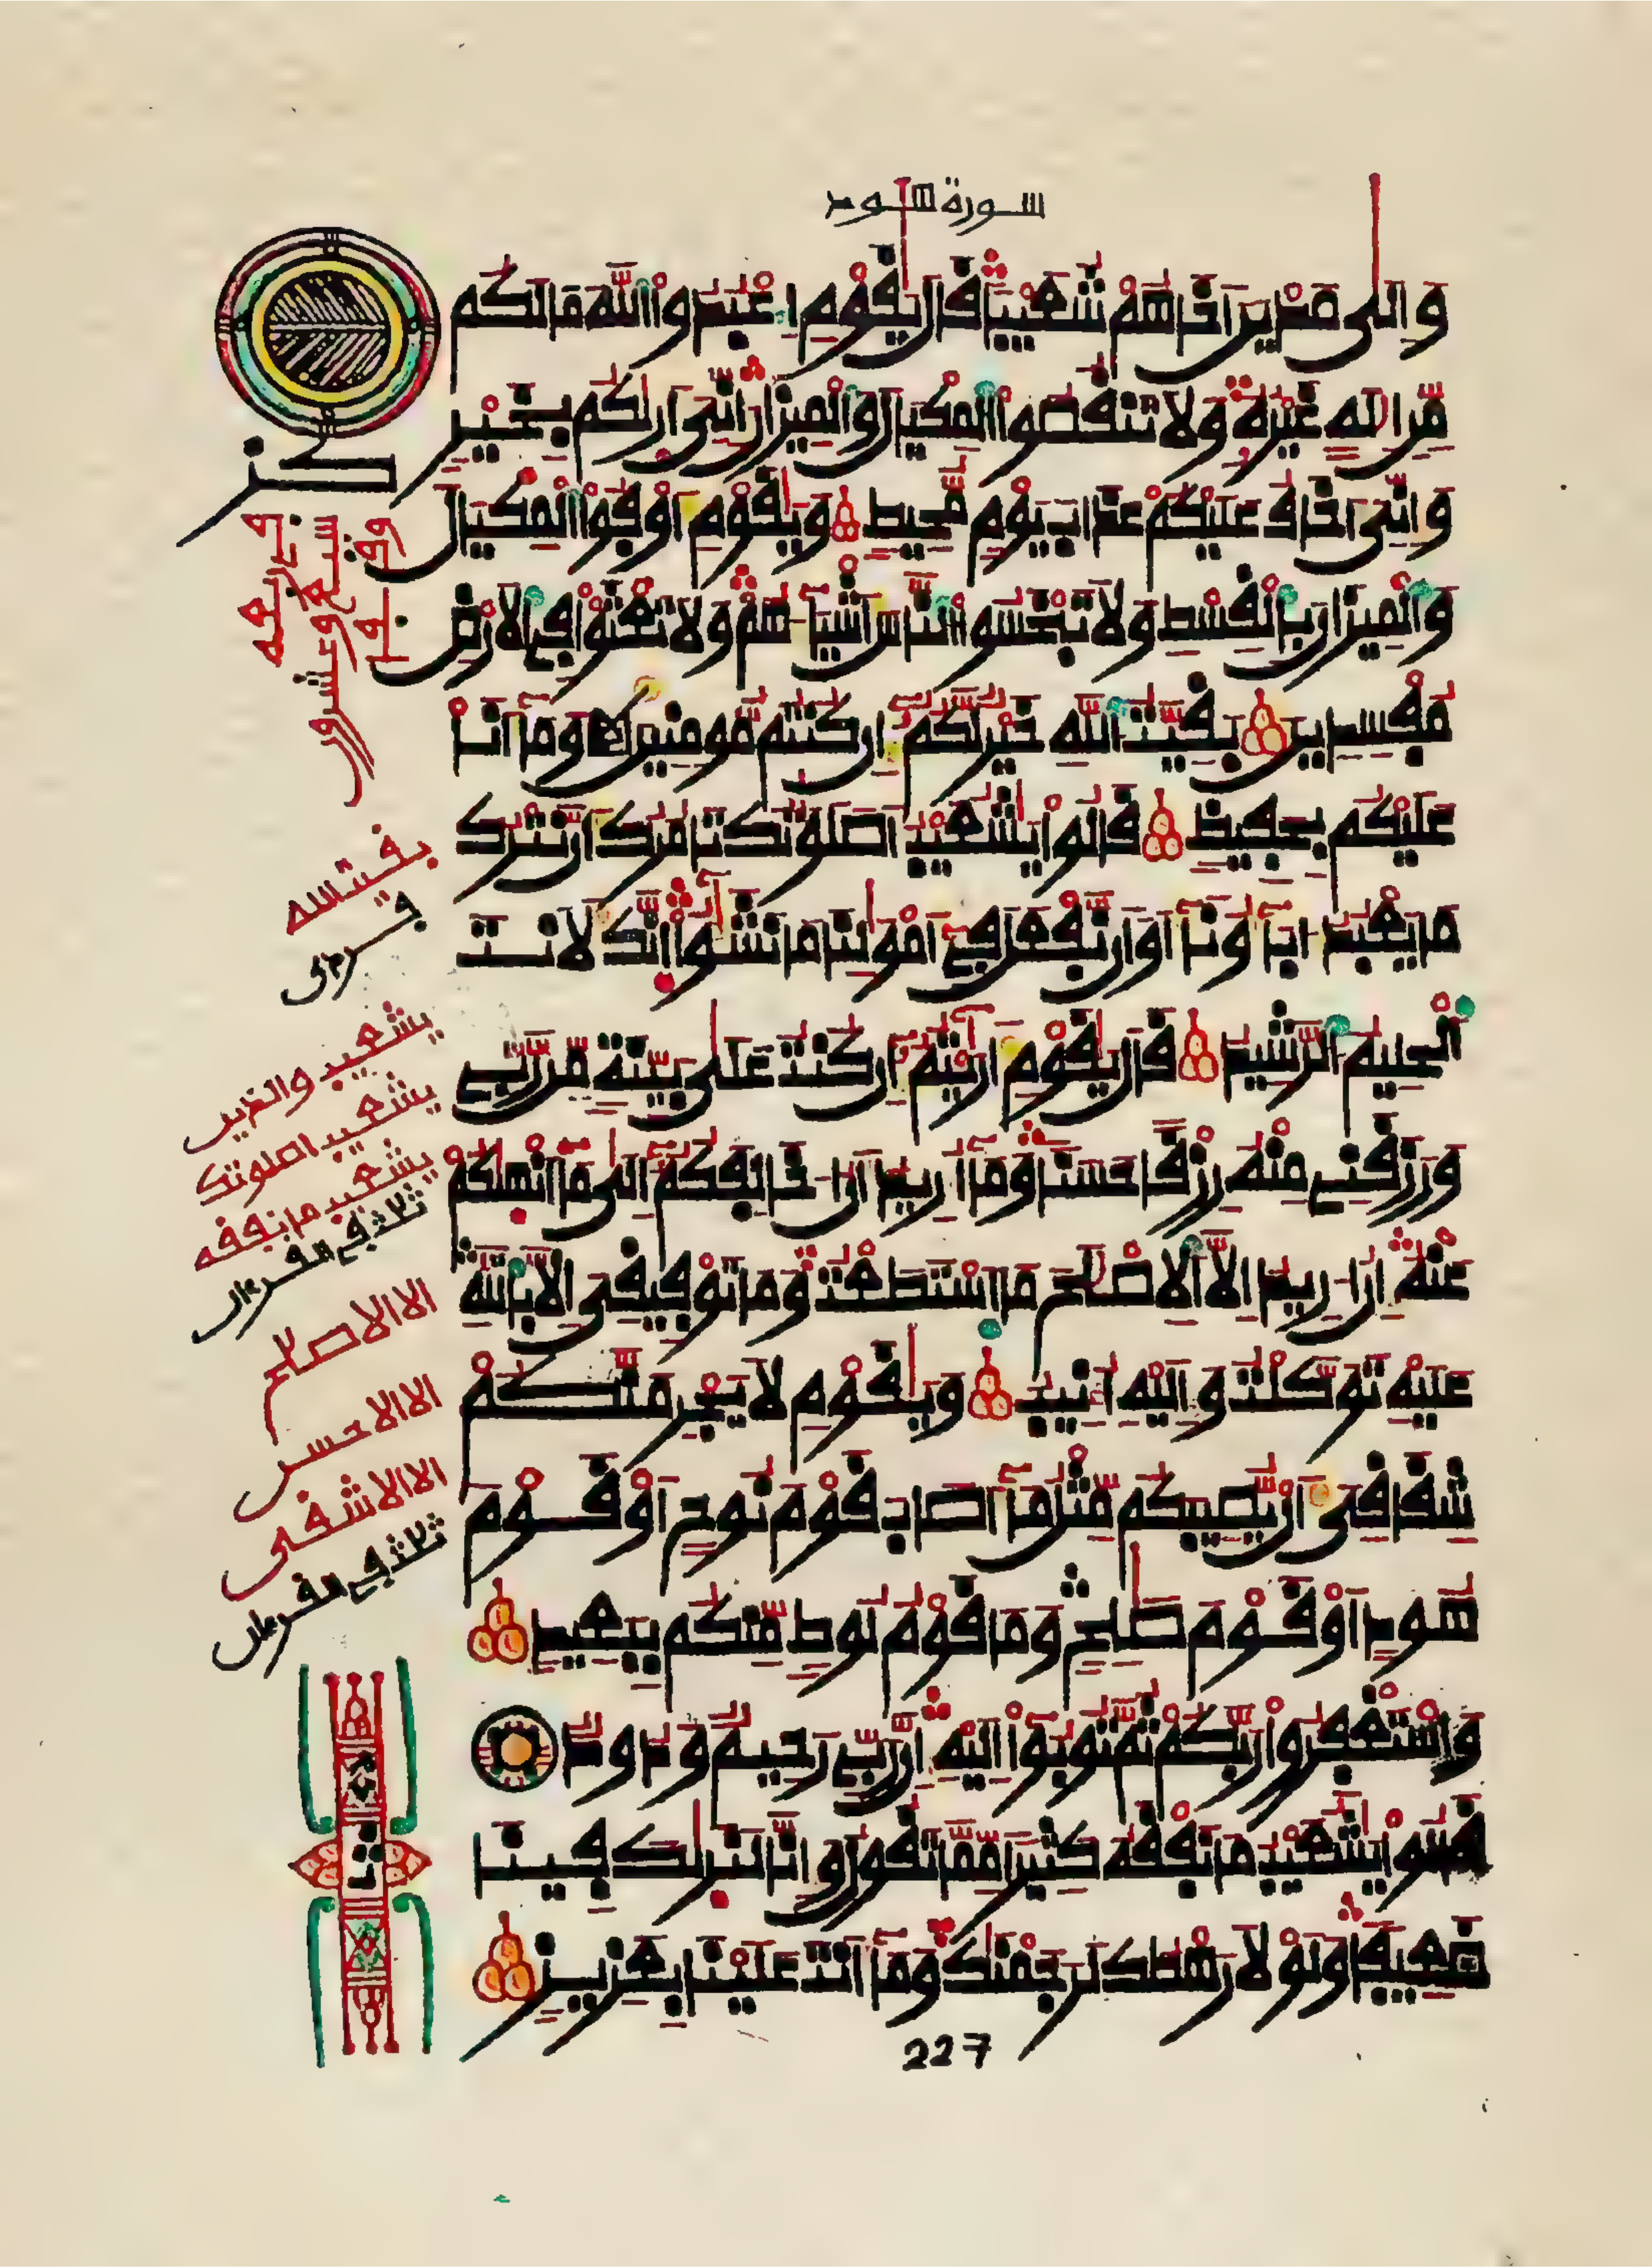 سورة هود
وإلى مدين أخاهم شعيبا قال يقوم اعبدوا الله ما لكم
من إله غيره ولا تنقصوا المكيال والميزان إني أريكم بخير
وإني أخاف عليكم عذاب يوم محيط ويقوم أوفوا المكيال
والميزان بالقسط ولا تبخسوا الناس أشياءهم ولا تعثوا في الأرض
مفسدين بقيت الله خير لكم إن كنتم مومنين وما أنا
عليكم بحفيظ قالوا يشعيب أصلوتك تامرك أن نترك
ما يعبد ءاباؤنا أو أن نفعل في أمولنا ما نشؤا إنك لأنت
الحليم الرشيد قال يقوم أريتم إن كنت على بينة من ربي
ورزقني منه رزقا حسنا وما أريد أن أخالفكم إلى ما أنهيكم
عنه إن أريد إلا الإصلح ما استطعت وما توفيقي إلا بالله
عليه توكلت وإليه أنيب ويقوم لا يجرمنكم
شقاقي أن يصيبكم مثل ما أصاب قوم نوح أو قوم
هود أو قوم صلح وما قوم لوط منكم ببعيد
واستغفروا ربكم ثم توبوا إليه إن ربي رحيم ودود
قالوا يشعيب ما نفقه كثيرا مما تقول وإنا لنريك فينا
ضعيفا ولولا رهطك لرجمنك وما أنت علينا بعزيز
بقيت الله
يشعيب والذين
يشعيب اصلوتك
يشعيب ما نفقه
ثلاث في القرءان
الا الاصلح
الا الاحسن
الا الاشقى
ثلاث في القرءان
227